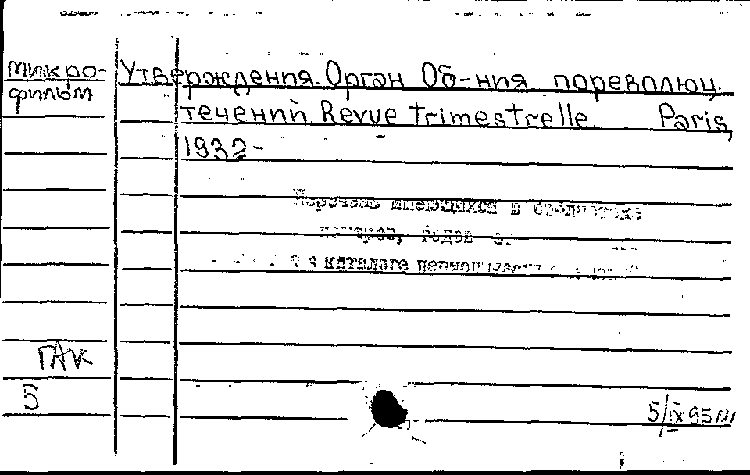 микро-
фильм
Утверждения. Орган Об-ния пореволюц.
течений Revue trimestrelle Paris,
1932-
Перечень имеющихся в библиотеке
номеров, годов
в каталоге
ГАК
5
5/IX 95